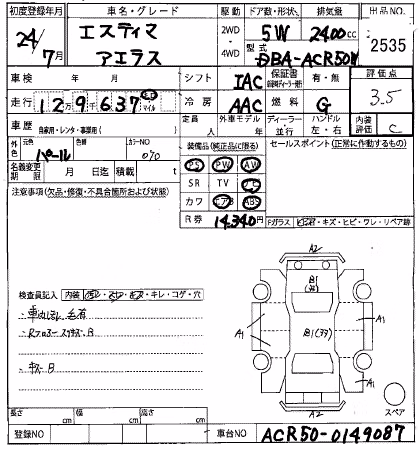 初度登録年月 車名・グレード 駆動 ドア数・形状 排気量 出品NO.
24/7月 エスティマ アエラス 2WD・4WD 5W 2400cc 2535
型式 DBA-ACR50W
車検 年 月 シフト IAC 保証書 有・無 評価点
走行 129,637 冷房 AAC 燃料 G 3.5
車歴 自家用・レンタ・事業用( ) 定員 人 外車モデル 年 ディーラー・並行 ハンドル 左・右 内装評価 C
外色 元色 パール 色替 カラーNO 070
装備品(純正品に限る) セールスポイント(正常に作動するもの)
名義変更期限 月 日迄 積載 t
PS PW AW
SR TV ナビ
カワ エアB ABS
注意事項(欠品・修復・不具合箇所および状態)
R券 14,340円
Fガラス ヒビ・キズ・ヒビ・ワレ・リペア跡
A2
検査員記入 内装
キレ・コゲ・穴
B1
A1 B1 A1
キズB
A1
A2
スペア
長さ cm 幅 cm 高さ cm
登録NO 車台NO ACR50-0149087